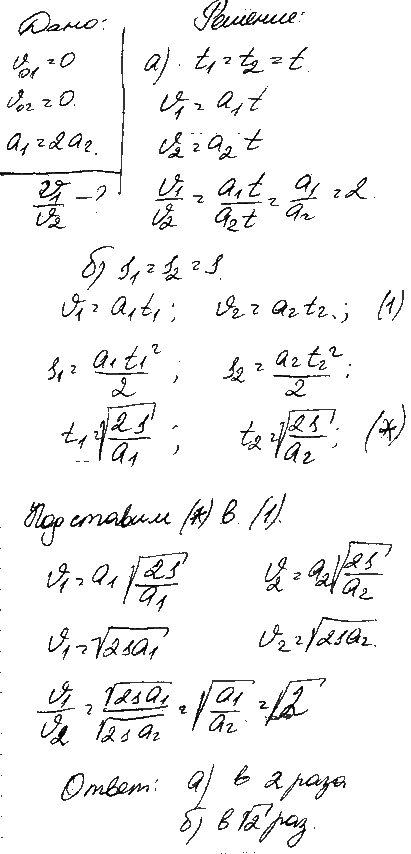 Дано: Решение:
v₀₁ = 0 а) t₁ = t₂ = t.
v₀₂ = 0. v₁ = a₁t
a₁ = 2a₂. v₂ = a₂t
v₁/v₂ - ? v₁/v₂ = a₁t/a₂t = a₁/a₂ = 2.
б) s₁ = s₂ = s.
v₁ = a₁t₁; v₂ = a₂t₂.; (1)
s₁ = a₁t₁²/2; s₂ = a₂t₂²/2;
t₁ = √(2s/a₁); t₂ = √(2s/a₂); (*)
Подставим (*) в (1).
v₁ = a₁√(2s/a₁) v₂ = a₂√(2s/a₂)
v₁ = √(2sa₁) v₂ = √(2sa₂).
v₁/v₂ = √(2sa₁)/√(2sa₂) = √(a₁/a₂) = √2
Ответ: а) в 2 раза
б) в √2 раз.